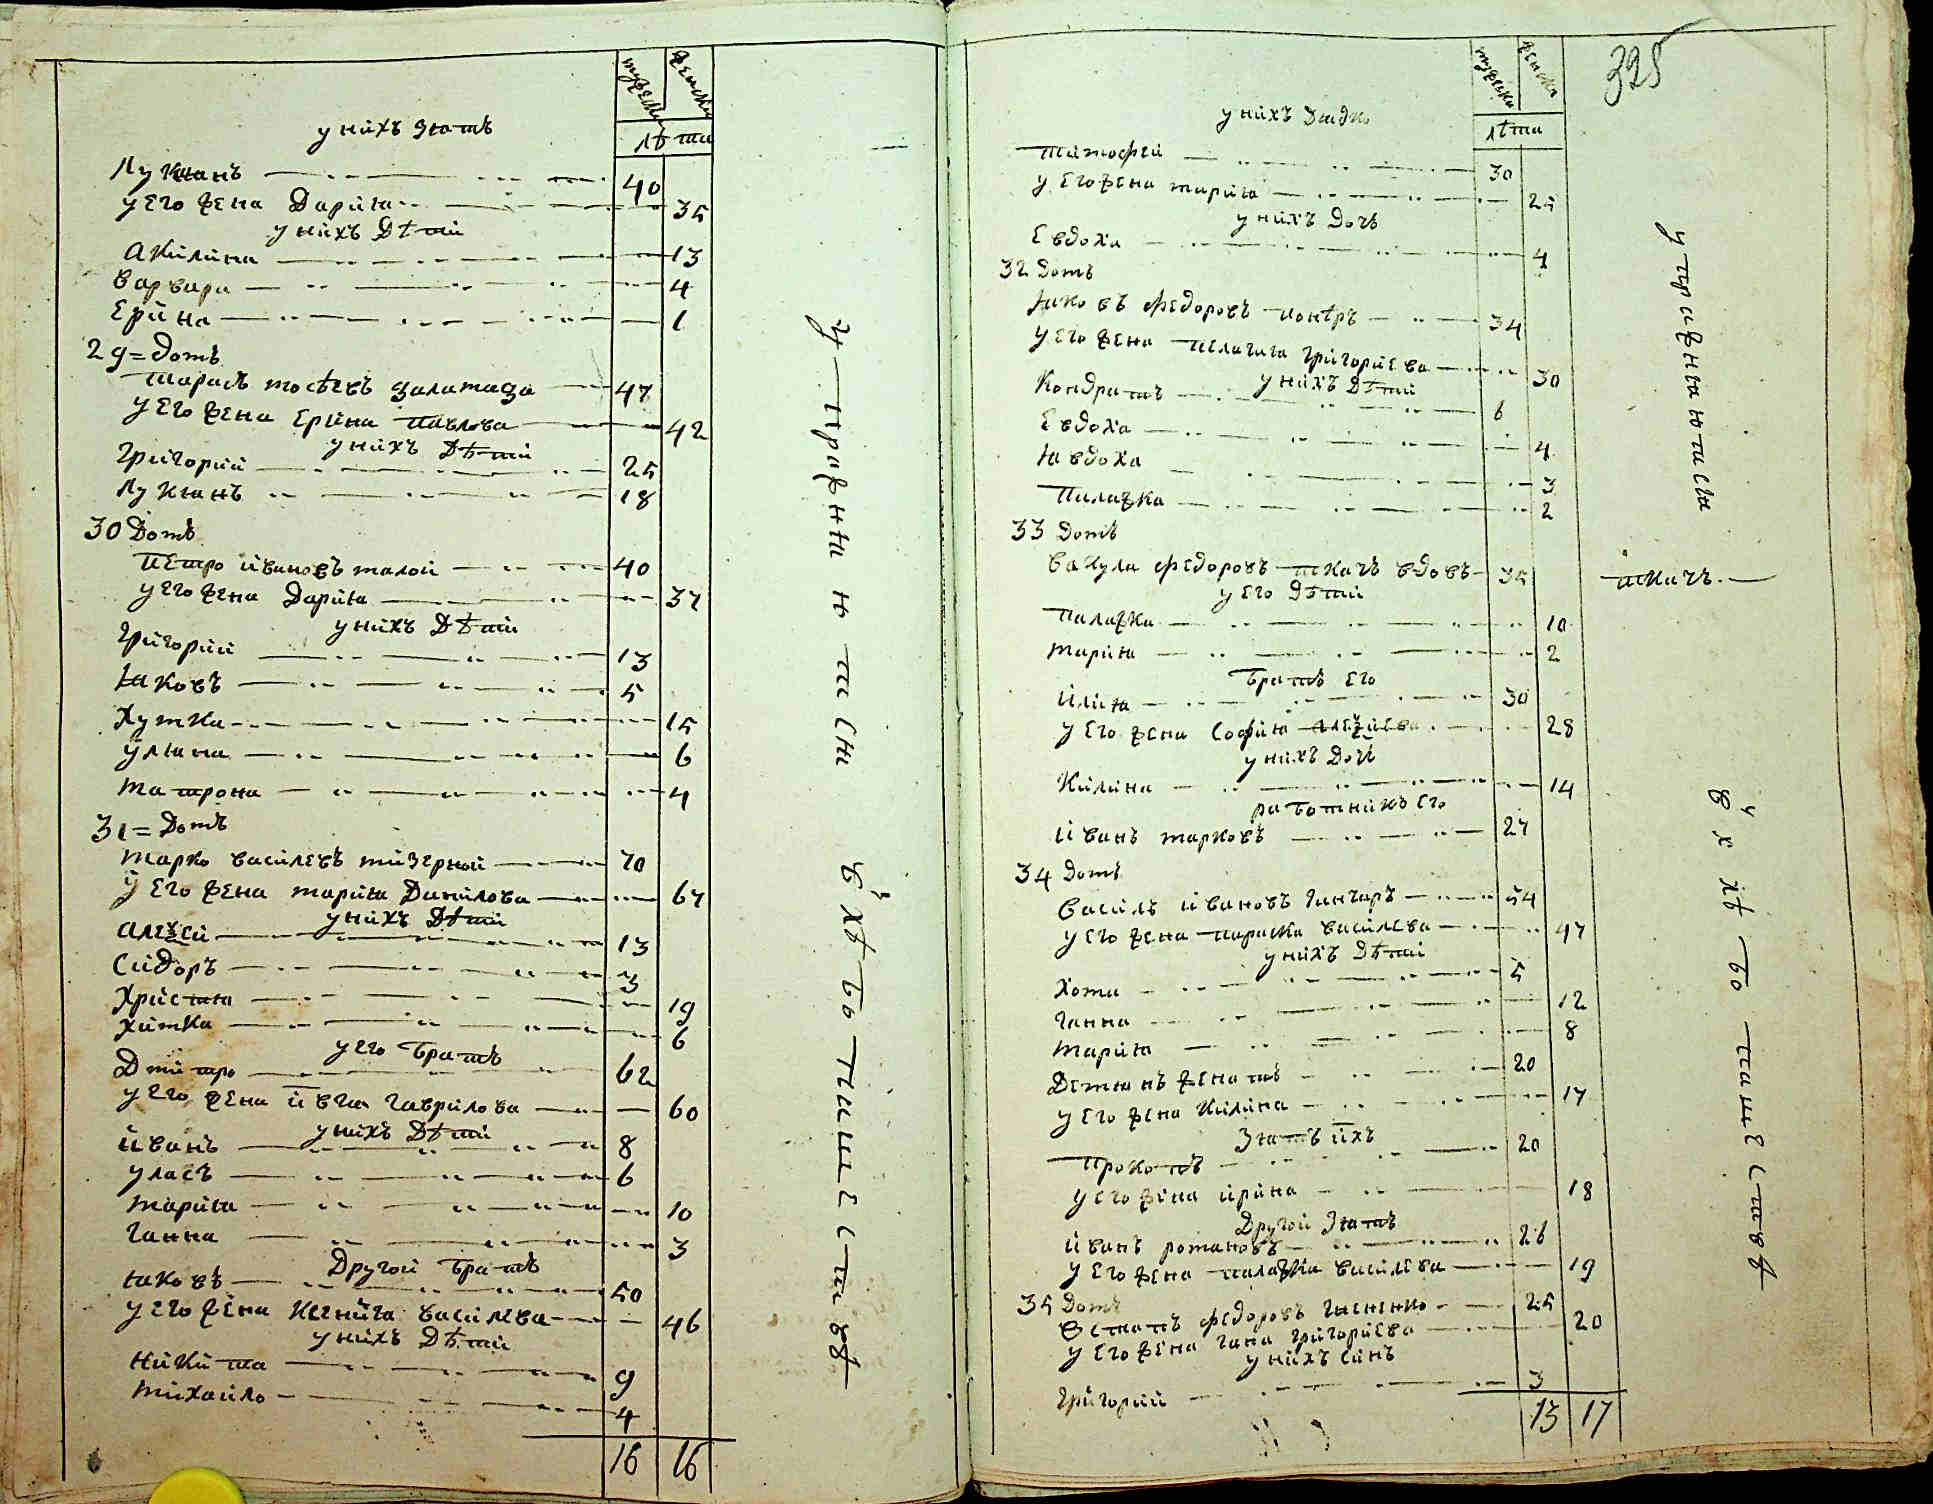 мужеска женска
лѣта
у нихъ зять
Лукянъ 40
у его жена Дарія 35
у нихъ Дѣти
Акилина 13
Варвара 4
Ерина 1
29 = домъ
Тарасъ мосѣевъ 47
у его жена Ерина павлова 42
у нихъ Дѣти
Григорий 25
Лукянъ 18
30 Домъ
Петро ивановъ малой 40
у его жена Дарія 37
у нихъ Дѣти
Григорий 13
Яковъ 5
Химка 15
Уляна 6
Матрона 4
31 = Домъ
Марко василевъ мизерной 70
у его жена марія Данилова 67
у нихъ Дѣти
Алеѯей 13
Сидоръ 3
Христя 19
Химка 6
у его братъ
Дмитро 62
у его жена ивга гаврилова 60
у нихъ Дѣти
иванъ 8
уласъ 6
марія 10
ганна 3
Другой братъ
яковъ 50
у его жена василева 46
у нихъ Дѣти
Никита 9
Михайло 4
16 16
упражняются
в ихъ
325
мужеска женска
лѣта
у нихъ
Тимофей 30
у его жена марія 25
у нихъ Дочь
Евдоха 4
32 Домъ
яковъ федоровъ 34
у его жена пелагия григориева 30
у нихъ Дѣти
Кондратъ 6
Евдоха 4
явдоха 3
Палажка 2
33 домъ
Вакула федоровъ ткачъ вдовъ 35
у его Дѣти
Палажка 10
Марія 2
Братъ его
илия 30
у его жена Софія алеѯиева 28
у нихъ Дочь
Килина 14
работникъ его
иванъ марковъ 27
34 домъ
Василь ивановъ ганчаръ 54
у его жена параска василева 47
у нихъ Дѣти
Хома 5
ганна 12
марія 8
Демянъ женатъ 20
у его жена килина 17
Зять ихъ
Прокопъ 20
у его жена ирина 18
Другой зять
иванъ романовъ 26
у его жена палажка василева 19
35 Домъ
федоровъ 25
у его жена гана григориева 20
у нихъ синъ
Григорий 3
13 17
упражняются
ткачъ.
в ихъ